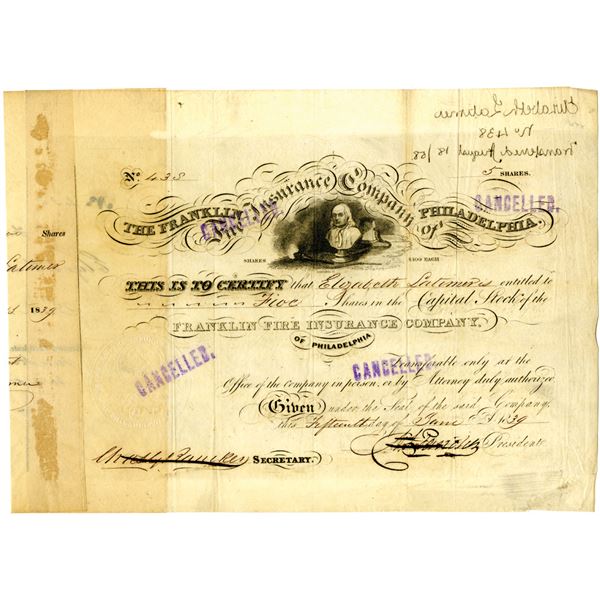 Elizabeth Latimer
No 438
Transferred August 18/58
No 438
5 SHARES.
Fire Insurance Company
THE FRANKLIN
OF PHILADELPHIA.
CANCELLED.
CANCELLED.
SHARES $100 EACH
Shares
THIS IS TO CERTIFY that Elizabeth Latimer is entitled to
Five Shares in the Capital Stock of the
FRANKLIN FIRE INSURANCE COMPANY,
OF PHILADELPHIA
1839
Transferable only at the
CANCELLED.
CANCELLED.
Office of the Company in person, or by Attorney duly authorized
Given under the Seal of the said Company
this Fifteenth day of June AD 1839
SECRETARY.
President